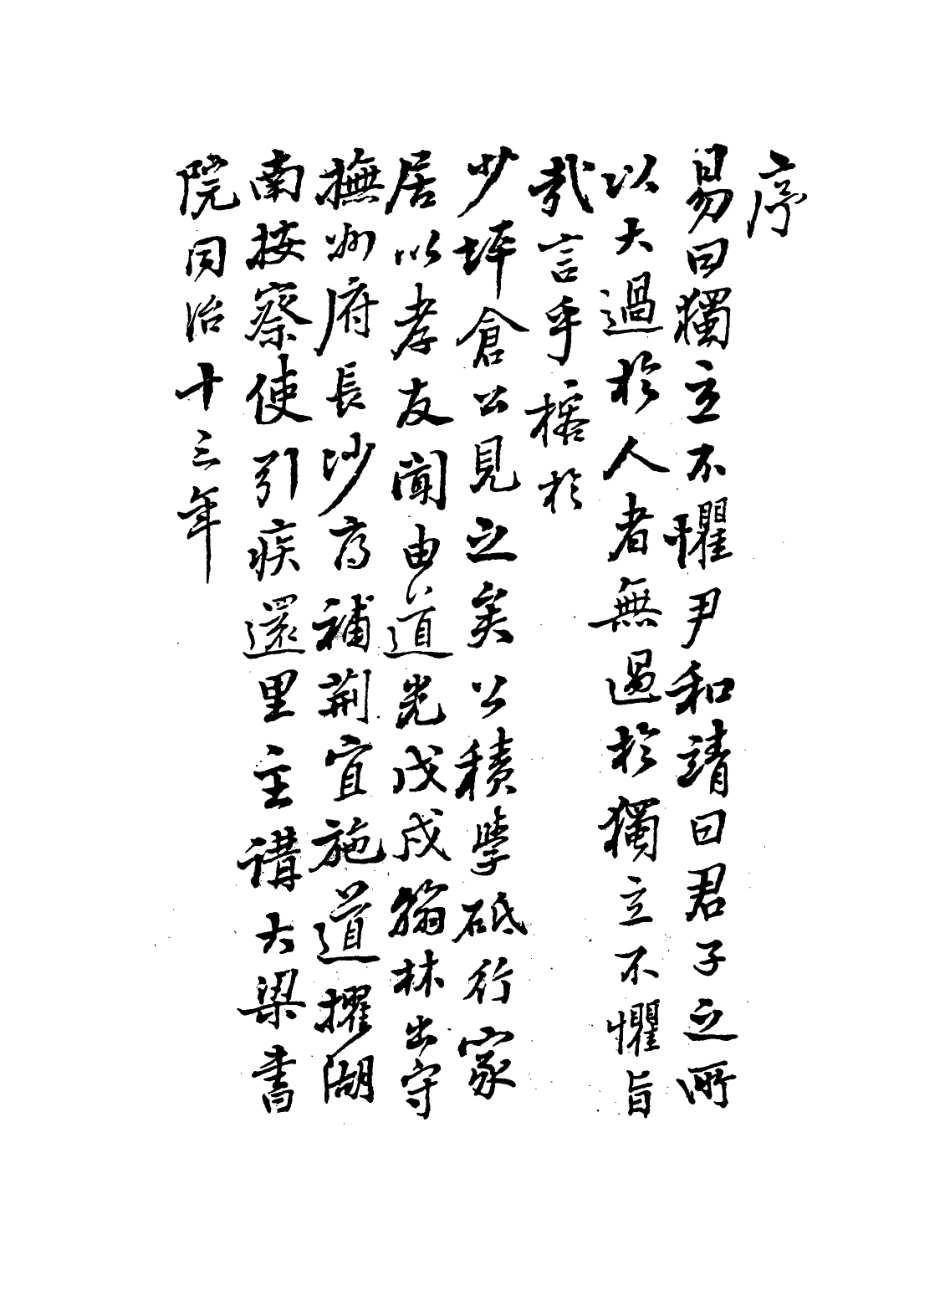 序
易曰獨立不懼尹和靖曰君子之所
以大過於人者無過於獨立不懼旨
哉言乎榕於
少坪倉公見之矣公積學砥行家
居以孝友聞由道光戊戌翰林出守
撫州府長沙府補荊宜施道擢湖
南按察使引疾還里主講大梁書
院同治十三年